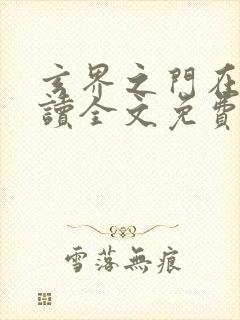 玄界之門在
讀全文免費
雪落無痕